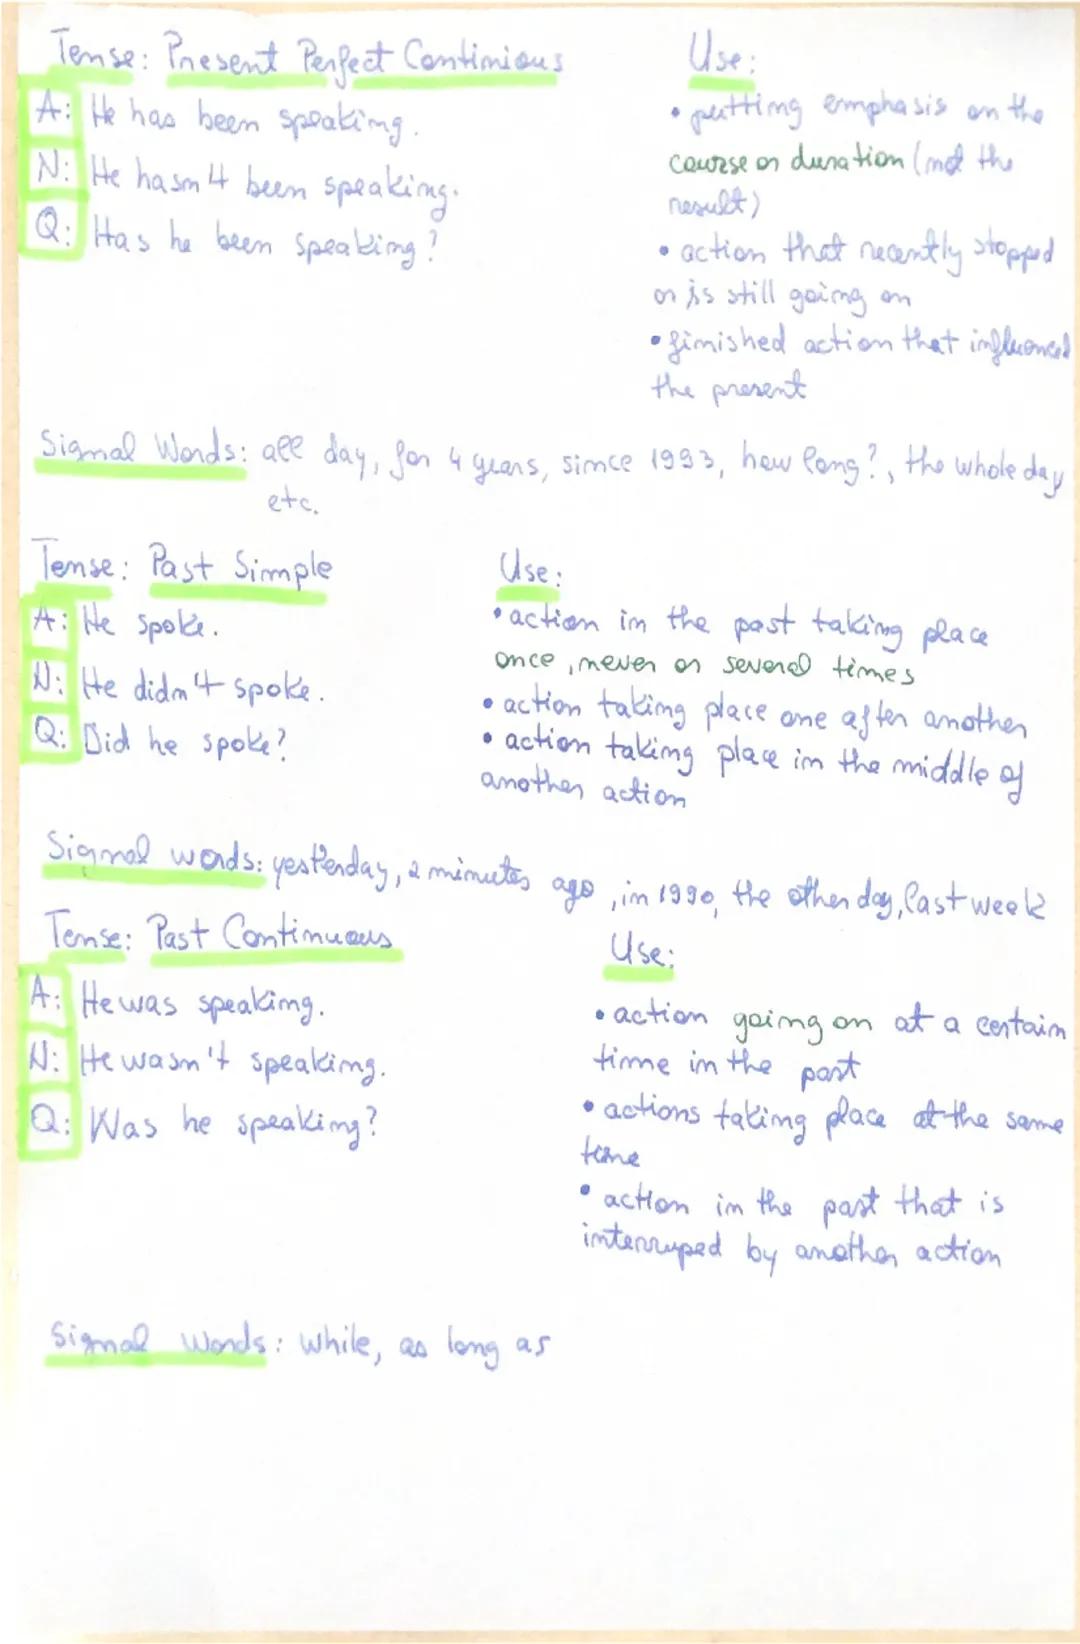 Tense: Present Perfect Continious
A: He has been speaking.
N: He hasn't been speaking.
Q: Has he been speaking?
Use:
• putting emphasis on the
course or duration (not the
result)
• action that recently stopped
or is still going on
• finished action that influenced
the present
Signal Words: all day, for 4 years, since 1993, how long?, the whole day
etc.
Tense: Past Simple
A: He spoke.
N: He didn't spoke.
Q: Did he spoke?
Use:
• action in the past taking place
once, never or several times
• action taking place one after another
• action taking place in the middle of
another action
Signal words: yesterday, 2 minutes ago, in 1990, the other day, last week
Tense: Past Continuous
A: He was speaking.
N: He wasn't speaking.
Q: Was he speaking?
Use:
• action going on at a certain
time in the past
• actions taking place at the same
time
• action in the past that is
interruped by another action
Signal Words: while, as long as